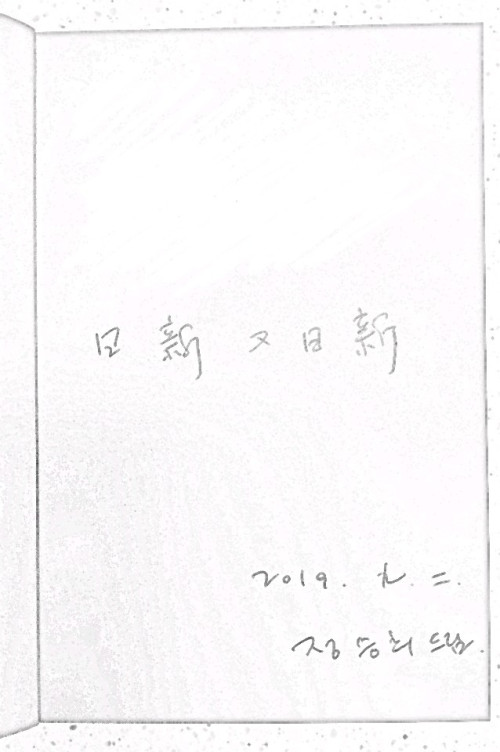 日新 又日新
2019. 九. 二.
정승희 드림.